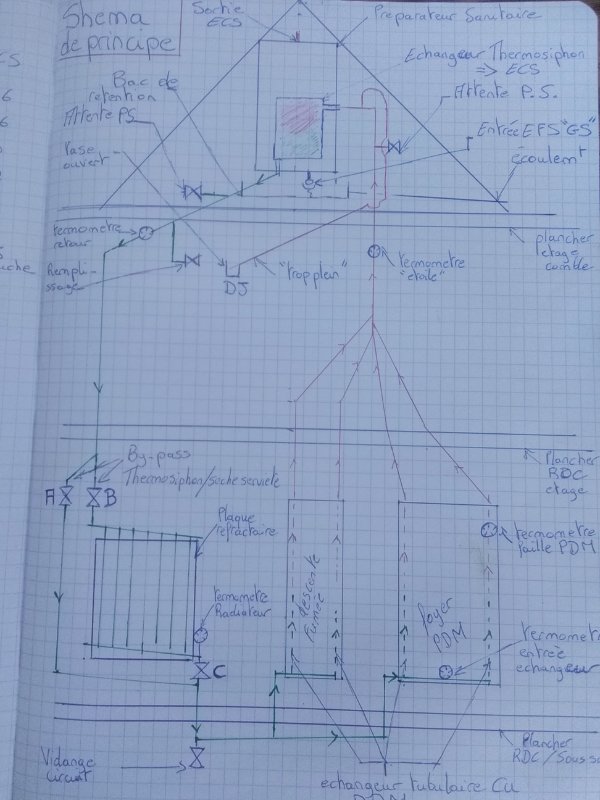 Shema
de principe
Sortie
ECS
Preparateur Sanitaire
Echangeur Thermosiphon
=> ECS
Bac de
retention
Attente PS
Attente P.S.
Vase
ouvert
Entrée EFS "GS"
écoulemt
termometre
retour
plancher
etage
comble
Rempli-
ssage
DJ
"trop plein"
termometre
"etoile"
By-pass
Thermosiphon/seche serviete
A
B
Plancher
RDC
etage
Plaque
refractaire
termometre
faille PDM
termometre
Radiateur
descente
fumée
foyer
PDM
termometre
entrée
echangeur
C
Plancher
RDC/Sous
Vidange
circuit
echangeur tubulaire Cu
PDM
CS
6
6